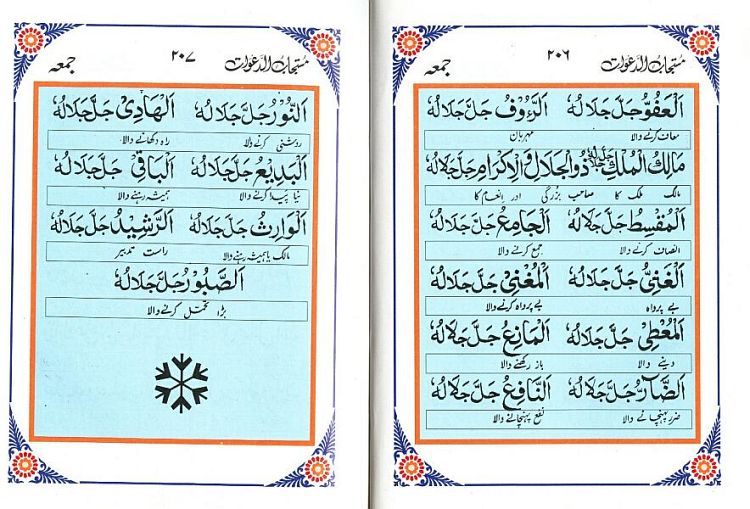 مستجاب الدعوات ۲۰۶ جمعہ
اَلْعَفُوُّ جَلَّ جَلَالُہٗ اَلرَّءُوْفُ جَلَّ جَلَالُہٗ
معاف کرنے والا مہربان
مَالِکُ الْمُلْکِ جَلَّ جَلَالُہٗ ذُوالْجَلَالِ وَالْاِکْرَامِ جَلَّ جَلَالُہٗ
مالک ملک کا صاحب بزرگی اور انعام کا
اَلْمُقْسِطُ جَلَّ جَلَالُہٗ اَلْجَامِعُ جَلَّ جَلَالُہٗ
انصاف کرنے والا جمع کرنے والا
اَلْغَنِیُّ جَلَّ جَلَالُہٗ اَلْمُغْنِیْ جَلَّ جَلَالُہٗ
بے پرواہ بے پرواہ کرنے والا
اَلْمُعْطِیْ جَلَّ جَلَالُہٗ اَلْمَانِعُ جَلَّ جَلَالُہٗ
دینے والا باز رکھنے والا
اَلضَّآرُّ جَلَّ جَلَالُہٗ اَلنَّافِعُ جَلَّ جَلَالُہٗ
ضرر پہنچانے والا نفع پہنچانے والا
مستجاب الدعوات ۲۰۷ جمعہ
اَلنُّوْرُ جَلَّ جَلَالُہٗ اَلْھَادِیْ جَلَّ جَلَالُہٗ
روشنی کرنے والا راہ دکھانے والا
اَلْبَدِیْعُ جَلَّ جَلَالُہٗ اَلْبَاقِیْ جَلَّ جَلَالُہٗ
نیا پیدا کرنے والا ہمیشہ رہنے والا
اَلْوَارِثُ جَلَّ جَلَالُہٗ اَلرَّشِیْدُ جَلَّ جَلَالُہٗ
مالک یا ہمیشہ رہنے والا راست تدبیر
اَلصَّبُوْرُ جَلَّ جَلَالُہٗ
بڑا تحمل کرنے والا